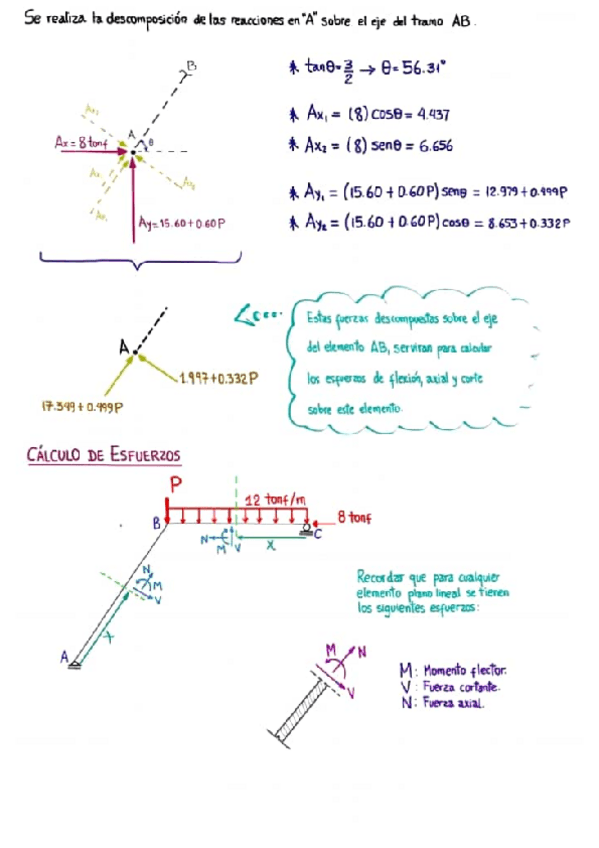 Se realiza la descomposición de las reacciones en "A" sobre el eje del tramo AB.
B
* tanθ=3/2 → θ=56.31°
Ax₂
* Ax₁ = (8) cosθ = 4.437
A
θ
Ax = 8 tonf
* Ax₂ = (8) senθ = 6.656
Ax₁
* Ay₁ = (15.60 + 0.60P) senθ = 12.979 + 0.499P
Ay=15.60+0.60P
* Ay₂ = (15.60 + 0.60P) cosθ = 8.653 + 0.332P
Estas fuerzas descompuestas sobre el eje
del elemento AB, serviran para calcular
A
los esfuerzos de flexión, axial y corte
1.997+0.332P
sobre este elemento.
17.399 + 0.499P
CÁLCULO DE ESFUERZOS
P
12 tonf/m
8 tonf
B
C
N
M
V
x
N
M
V
x
A
Recordar que para cualquier
elemento plano lineal se tienen
los siguientes esfuerzos:
M
N
V
M: Momento flector.
V: Fuerza cortante.
N: Fuerza axial.